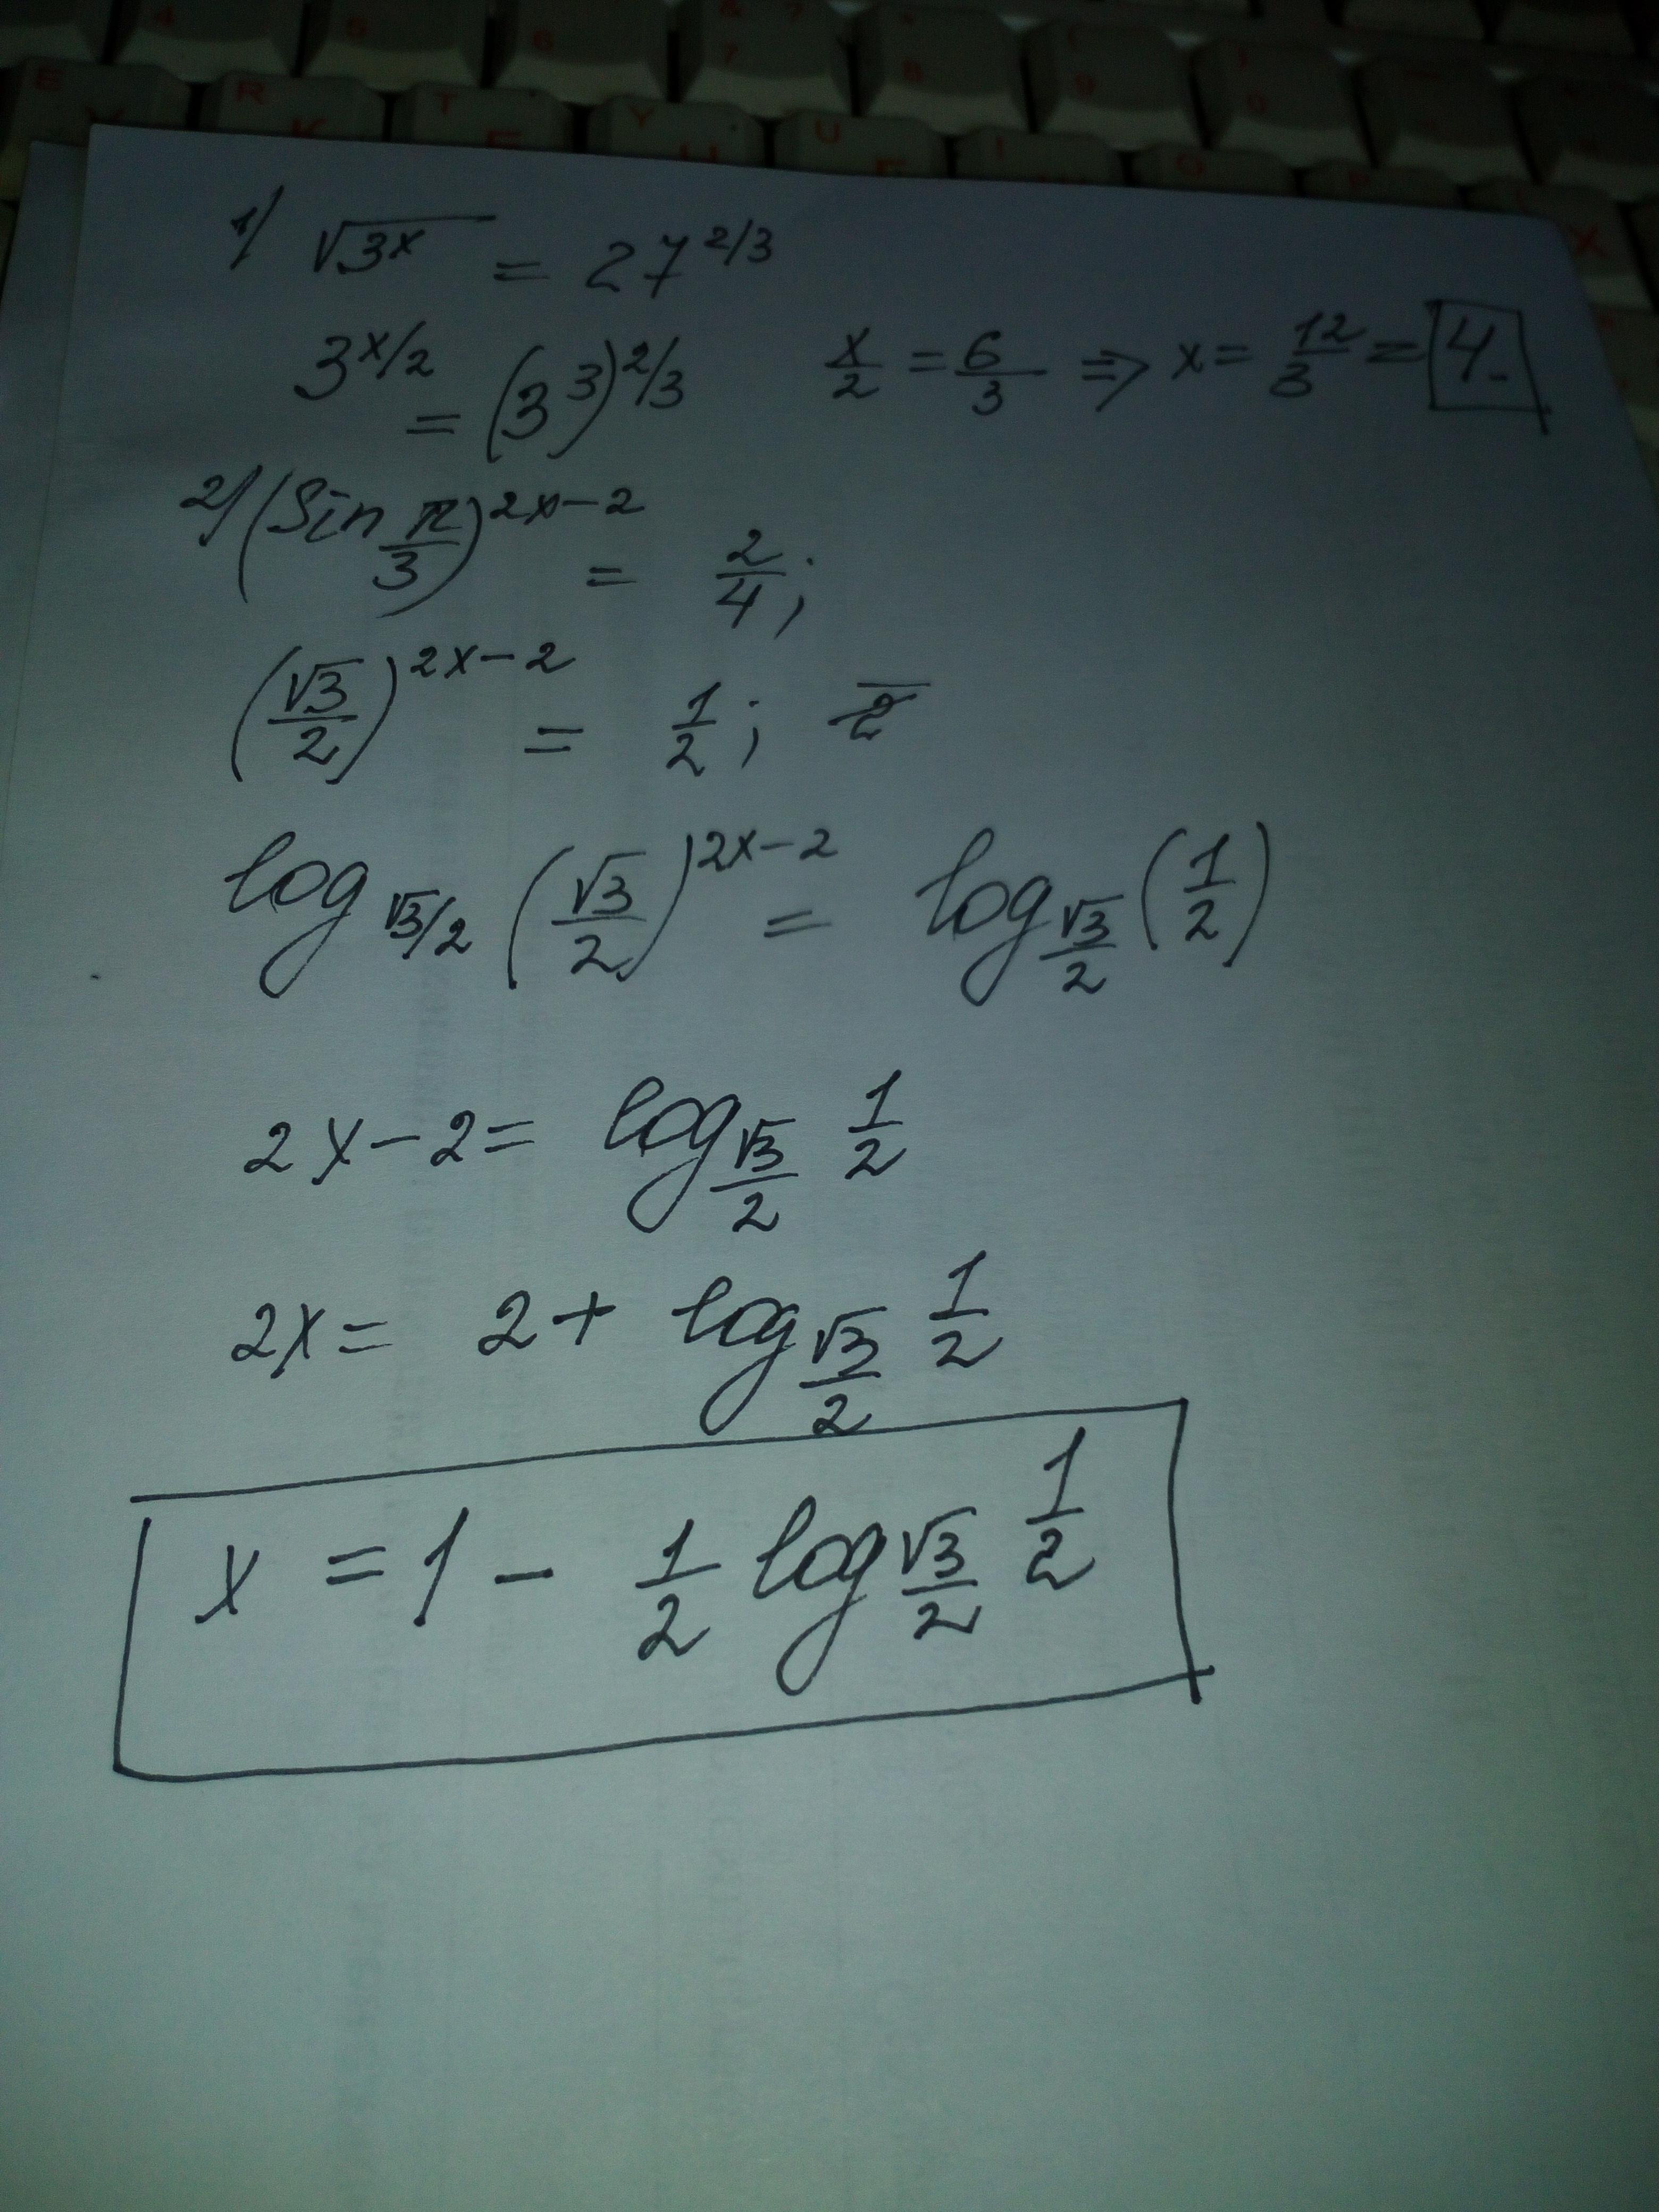 4 5 6 & 7 7 * 8 ( 9 ) 0
E У R К T Е Y Н U I O P X
1/ √3^x = 27^2/3
3^x/2 = (3^3)^2/3 x/2 = 6/3 ⇒ x = 12/3 = 4.
2/ (Sin π/3)^2x-2 = 2/4;
(√3/2)^2x-2 = 1/2;
log_√3/2 (√3/2)^2x-2 = log_√3/2 (1/2)
2x-2 = log_√3/2 1/2
2x = 2 + log_√3/2 1/2
x = 1 - 1/2 log_√3/2 1/2